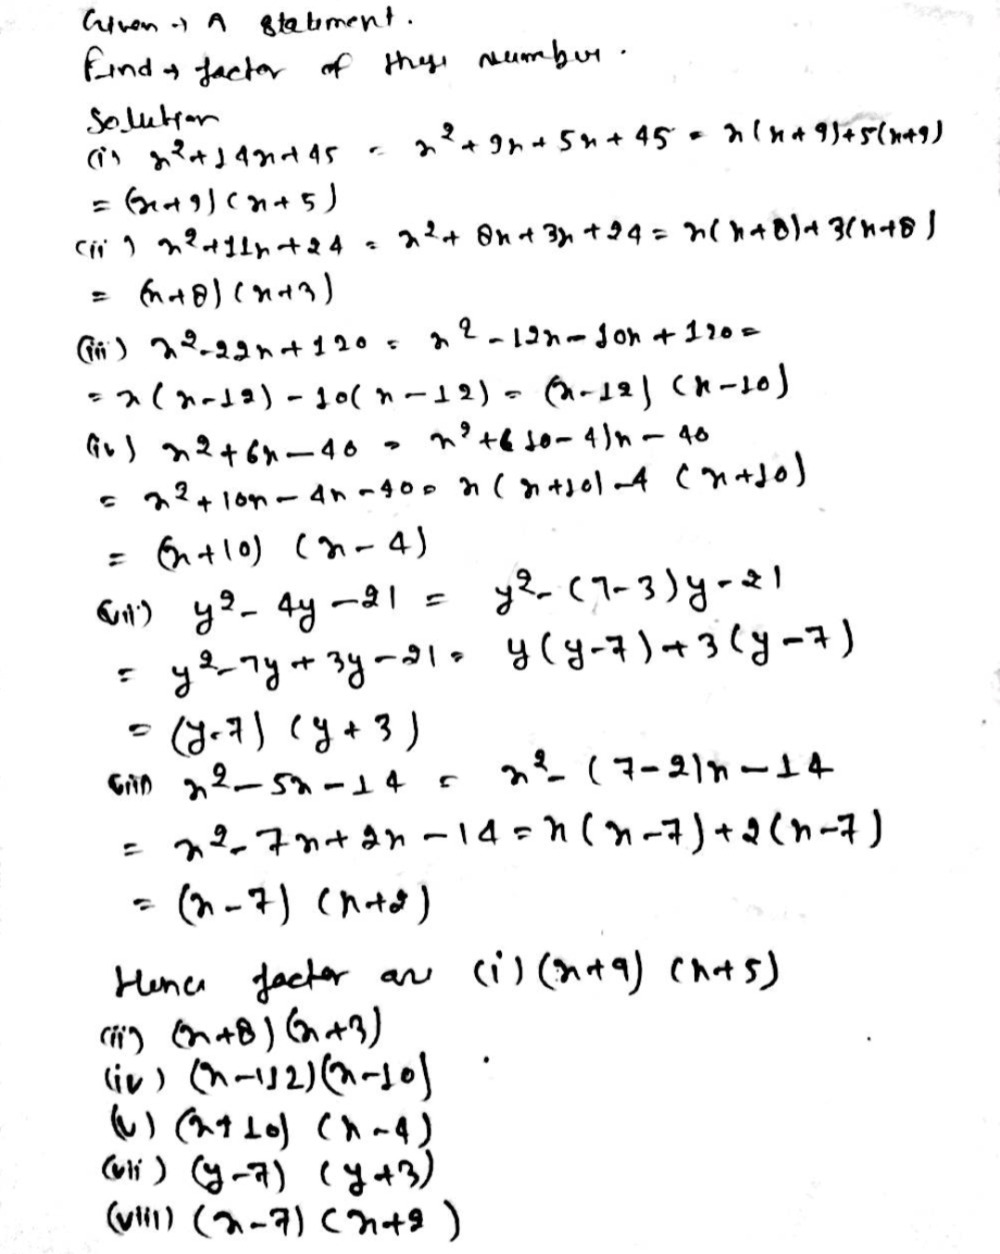 Given → A statement.
Find → factor of these number.
Solution
(i) x²+14x+45 = x²+9x+5x+45 = x(x+9)+5(x+9)
= (x+9)(x+5)
(ii) x²+11x+24 = x²+8x+3x+24 = x(x+8)+3(x+8)
= (x+8)(x+3)
(iii) x²-22x+120 = x²-12x-10x+120=
= x(x-12)-10(x-12) = (x-12)(x-10)
(iv) x²+6x-40 = x²+(10-4)x-40
= x²+10x-4x-40= x(x+10)-4(x+10)
= (x+10) (x-4)
(vii) y²-4y-21 = y²-(7-3)y-21
= y²-7y+3y-21= y(y-7)+3(y-7)
= (y-7) (y+3)
(viii) x²-5x-14 = x²-(7-2)x-14
= x²-7x+2x-14=x(x-7)+2(x-7)
= (x-7) (x+2)
Hence factor are (i)(x+9) (x+5)
(ii) (x+8)(x+3)
(iv) (x-12)(x-10)
(v) (x+10) (x-4)
(vii) (y-7) (y+3)
(viii) (x-7) (x+2)